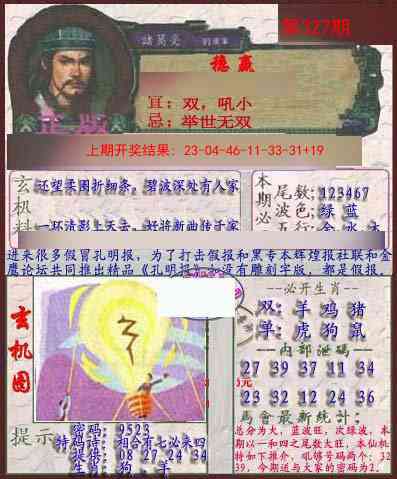 第327期
諸葛亮
的獨家
稳赢
宜：双，吼小
忌：举世无双
正版
上期开奖结果：23-04-46-11-33-31+19
玄机料
还望柔圈折细条，碧波深处有人家
一环清影上天去，好将新曲传于家
本期必
尾数;123467
波色;绿 蓝
五行;金 水 木
进来很多假冒孔明报，为了打击假报和黑专本辉煌报社联和金
鹰论坛共同推出精品《孔明报》如没有雕刻字版，都是假报。
玄机图
必开生肖
双: 羊 鸡 猪
单: 虎 狗 鼠
内部泄码
27 39 37 11 34
23 32 12 24 36
元
馬會最新統計:
总分为大，蓝波旺，次绿波，本
期以一和四之尾数大旺，本仙机
特如下推介，吼够号码两个: 32
39，今期送与大家的密码为2。
提示
密码: 9523
特码诗: 相合有七必来四
提供: 08 27 24 34
生肖: 狗 、 羊